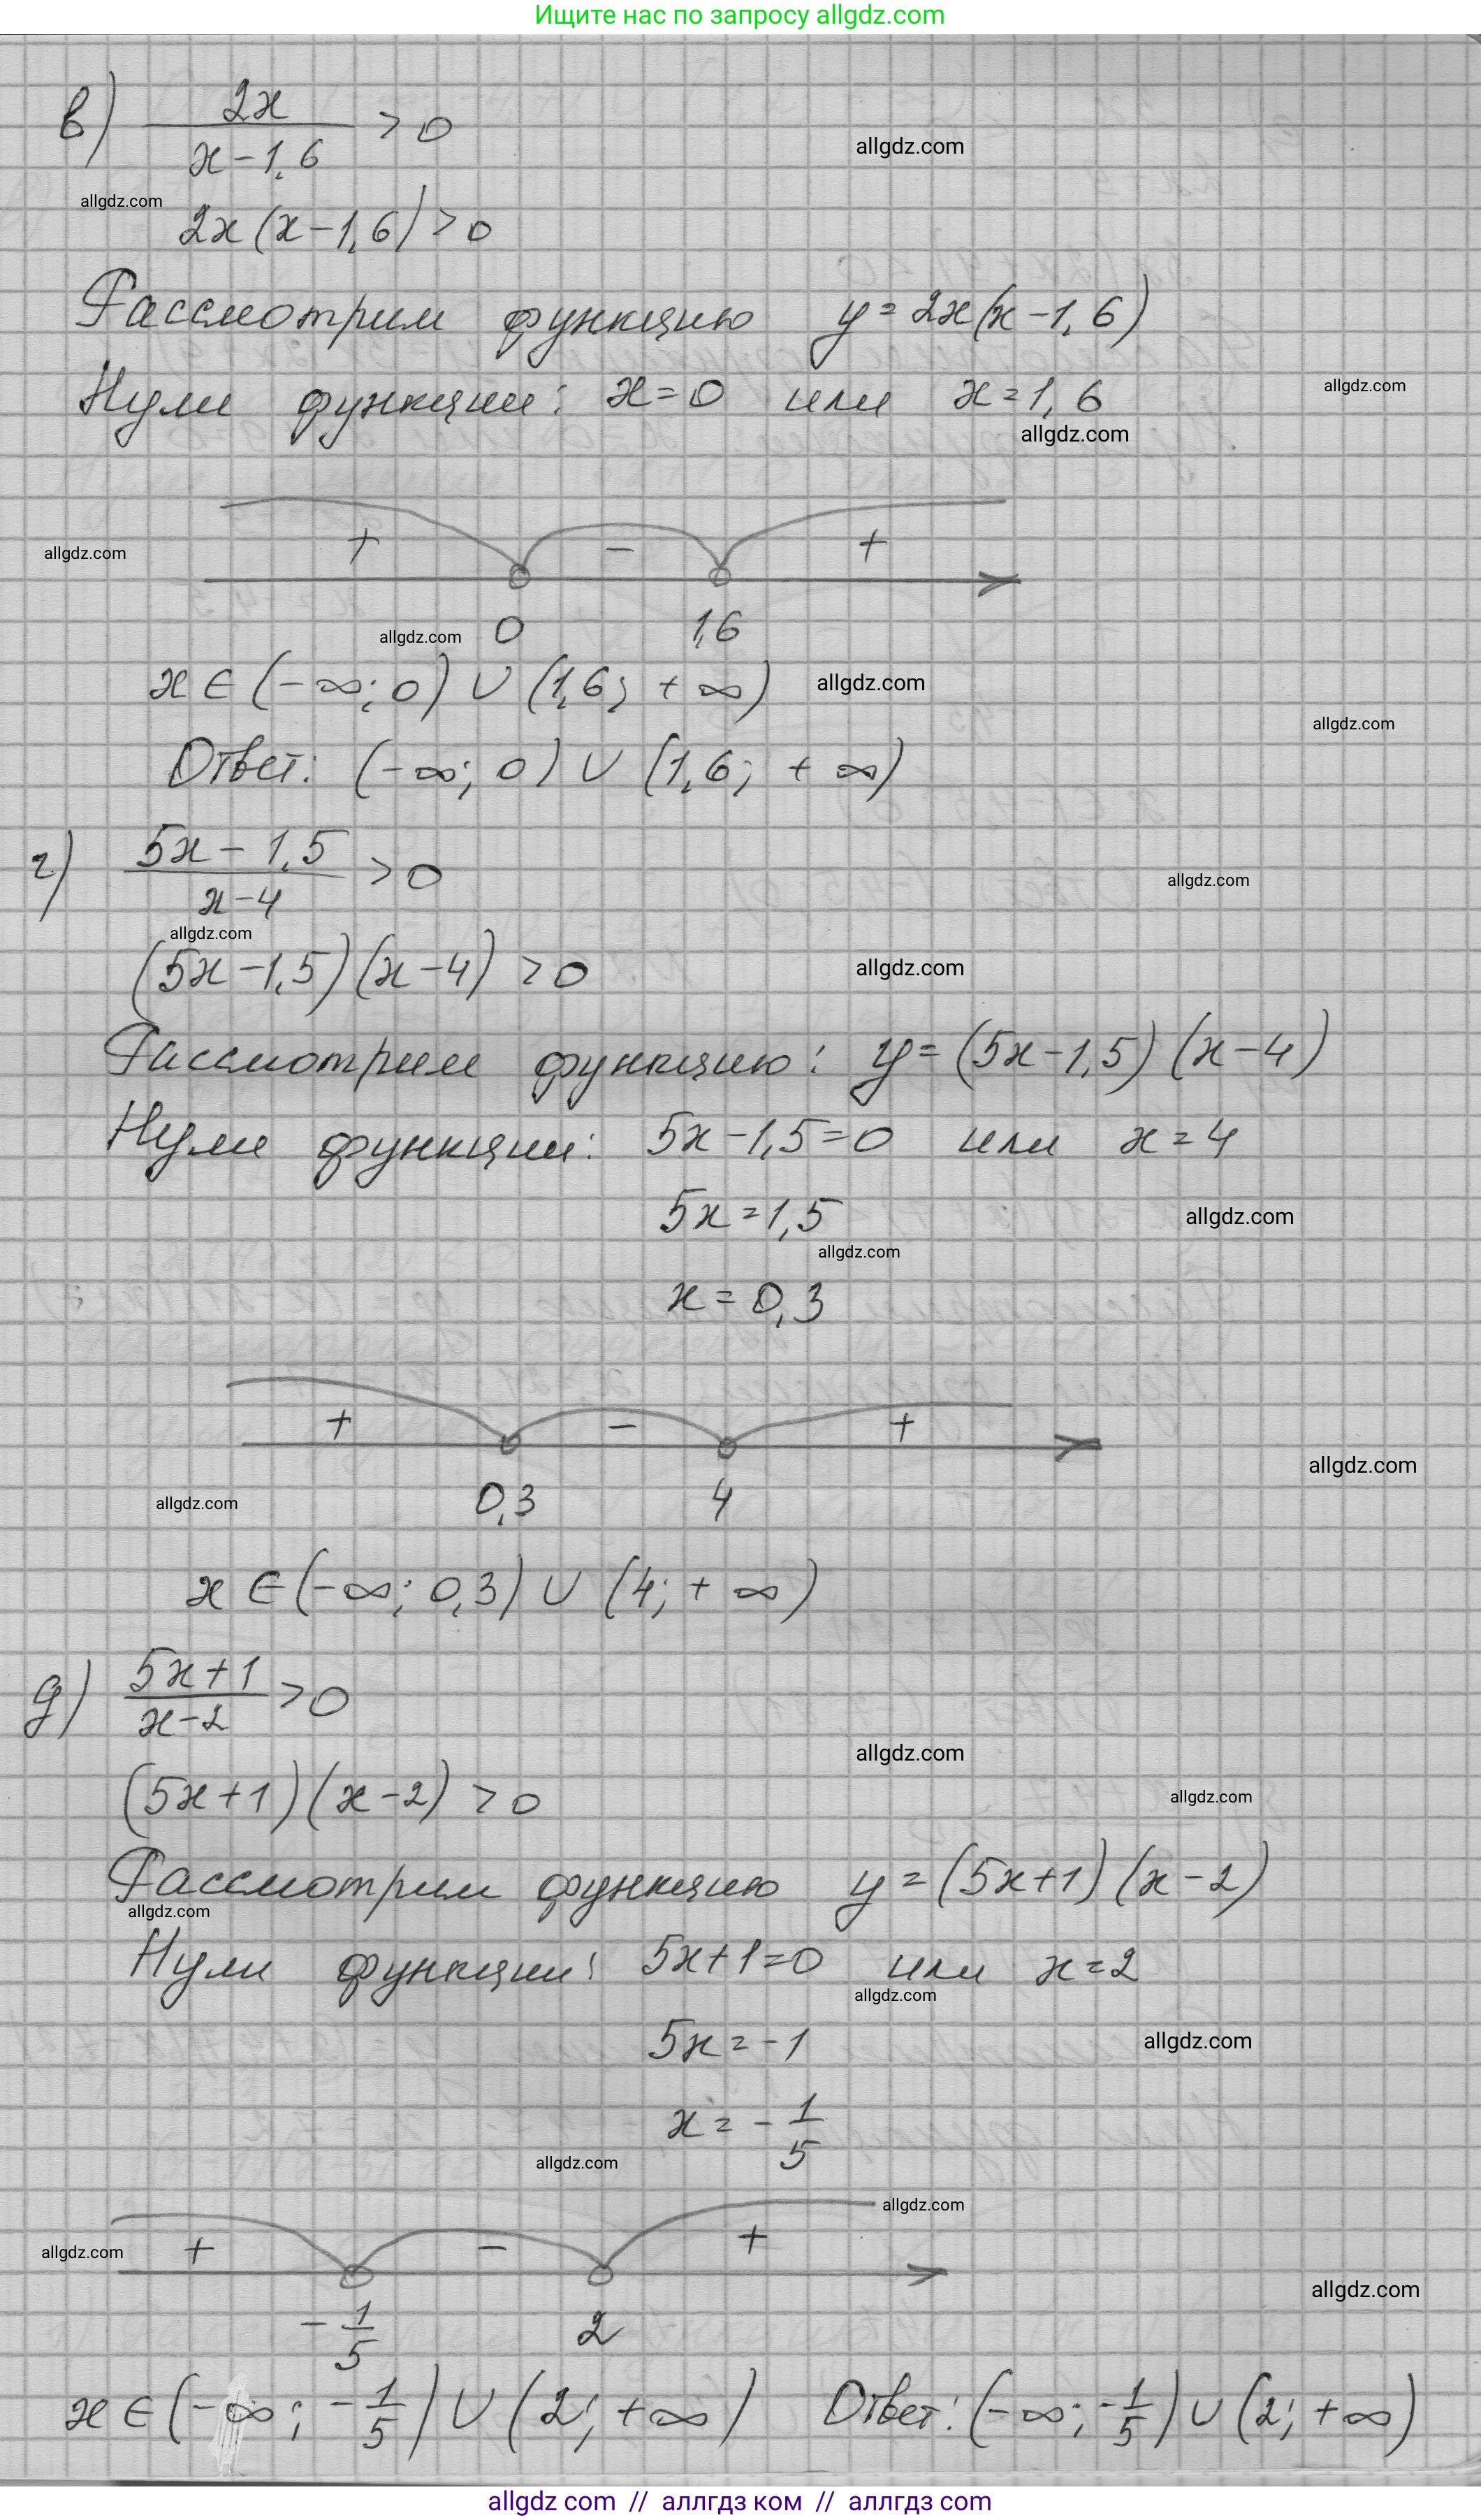 Ищите нас по запросу allgdz.com
в) 2x / (x-1,6) > 0
allgdz.com
allgdz.com
2x(x-1,6) > 0
Рассмотрим функцию y = 2x(x-1,6)
Нули функции: x=0 или x=1,6
allgdz.com
allgdz.com
+ - +
allgdz.com
0 1,6
allgdz.com
x ∈ (-∞; 0) ∪ (1,6; +∞)
allgdz.com
allgdz.com
Ответ: (-∞; 0) ∪ (1,6; +∞)
г) (5x-1,5) / (x-4) > 0
allgdz.com
allgdz.com
(5x-1,5)(x-4) > 0
allgdz.com
Рассмотрим функцию: y = (5x-1,5)(x-4)
Нули функции: 5x-1,5=0 или x=4
5x=1,5
allgdz.com
allgdz.com
x=0,3
+ - +
allgdz.com
0,3 4
allgdz.com
x ∈ (-∞; 0,3) ∪ (4; +∞)
д) (5x+1) / (x-2) > 0
allgdz.com
(5x+1)(x-2) > 0
allgdz.com
Рассмотрим функцию y = (5x+1)(x-2)
allgdz.com
Нули функции: 5x+1=0 или x=2
allgdz.com
5x=-1
allgdz.com
x = -1/5
allgdz.com
allgdz.com
+ - +
allgdz.com
allgdz.com
-1/5 2
x ∈ (-∞; -1/5) ∪ (2; +∞) Ответ: (-∞; -1/5) ∪ (2; +∞)
allgdz com // аллгдз ком // аллгдз com